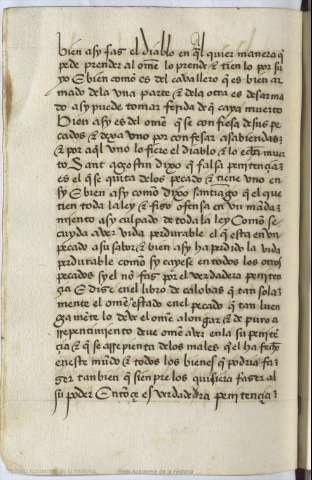 bien asy faz el diablo en q̃l quier manera q̃
pede prender al om̃e lo prende ⁊ tien lo por su
yo E bien com̃o es del cavallero q̃ es bien ar
mado dela una parte ⁊ dela otra es desarma
do asy puede tomar ferida de q̃ caya muerto
Bien asy es del om̃e que se confiesa desus pe
cados ⁊ dexa uno por confesar asabiendas
⁊ por aq̃l uno lo fiere el diablo ⁊ lo echa muer
to Sant agostin dixo q̃ falsa penitençia
es el q̃ se quita delos pecados ⁊ tiene uno en
sy E bien asy com̃o dixo santiago q̃ el que
tien toda la ley ⁊ fizo ofensa en un mãda
miento asy culpado de toda la ley Com̃o se
cuyda aver vida perdurable el q̃ esta en un
pecado a su sabor ⁊ bien asy ha perdido la vida
perdurable com̃o sy cayese en todos los otros
pecados sy el nõ faz por el verdadera peniten
çia E dize en el libro de que tan sola
mente el om̃e estado en el pecado q̃ tan luen
ga mẽte lo deve el om̃e alongar ⁊ de puro a
rrepentimiento deve om̃e aver en la su peniten
çia ⁊ q̃ se arrepienta delos males q̃ el ha fecho
en este mũdo ⁊ todos los bienes q̃ podria fa
zer tan bien q̃ sienpre los quisiera fazer al
su poder Entõçe es verdadera penitençia
Real Academia de la Historia